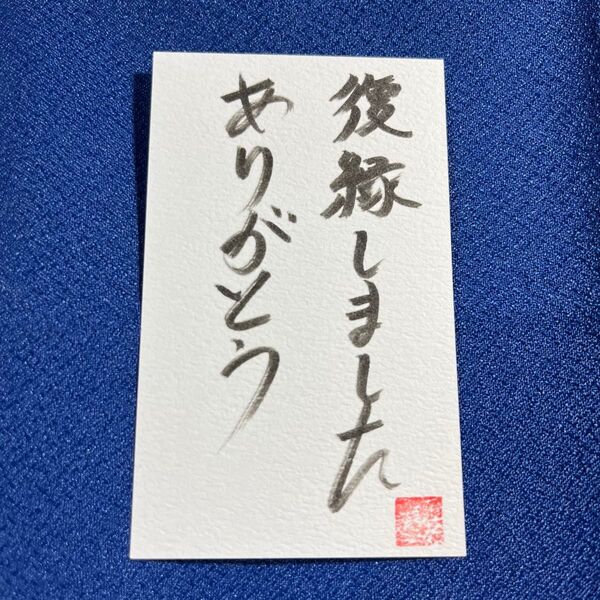 復縁しました
ありがとう